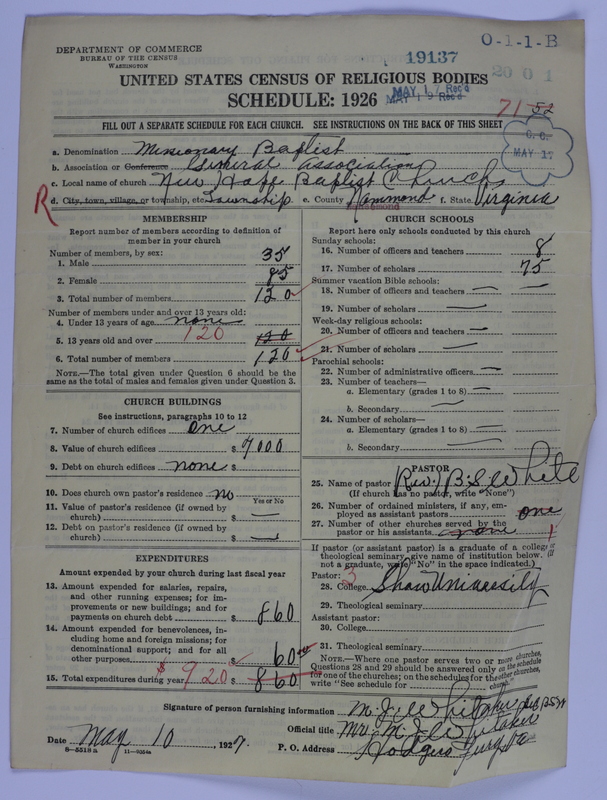 DEPARTMENT OF COMMERCE
BUREAU OF THE CENSUS
WASHINGTON
0-1-1-B
19137
2001
UNITED STATES CENSUS OF RELIGIOUS BODIES
SCHEDULE: 1926
MAY 17 Rec'd
MAY 19 Rec'd
71 52
C. C.
MAY 17
FILL OUT A SEPARATE SCHEDULE FOR EACH CHURCH. SEE INSTRUCTIONS ON THE BACK OF THIS SHEET
a. Denomination Missionary Baptist
b. Association or Conference General Association
c. Local name of church New Haff Baptist Church
R
d. City, town, village, or township, etc. Township e. County f. State Virginia
MEMBERSHIP
Report number of members according to definition of member in your church
Number of members, by sex:
1. Male 35
2. Female 85
3. Total number of members 120
Number of members under and over 13 years old:
4. Under 13 years of age none
5. 13 years old and over 120 120
6. Total number of members 120
NOTE.—The total given under Question 6 should be the
same as the total of males and females given under Question 3.
CHURCH BUILDINGS
See instructions, paragraphs 10 to 12
7. Number of church edifices one
8. Value of church edifices $ 7000
9. Debt on church edifices none $
10. Does church own pastor's residence no
Yes or No
11. Value of pastor's residence (if owned by
church) $ —
12. Debt on pastor's residence (if owned by
church) $ —
EXPENDITURES
Amount expended by your church during last fiscal year
13. Amount expended for salaries, repairs,
and other running expenses; for im-
provements or new buildings; and for
payments on church debt $ 860
14. Amount expended for benevolences, in-
cluding home and foreign missions; for
denominational support; and for all
other purposes $ 60
15. Total expenditures during year $ 920 $ 860
CHURCH SCHOOLS
Report here only schools conducted by this church
Sunday schools:
16. Number of officers and teachers 8
17. Number of scholars 75
Summer vacation Bible schools:
18. Number of officers and teachers —
19. Number of scholars —
Week-day religious schools:
20. Number of officers and teachers —
21. Number of scholars —
Parochial schools:
22. Number of administrative officers —
23. Number of teachers—
a. Elementary (grades 1 to 8) —
b. Secondary —
24. Number of scholars—
a. Elementary (grades 1 to 8) —
b. Secondary —
PASTOR
25. Name of pastor (Rev.) B S White
(If church has no pastor, write "None")
26. Number of ordained ministers, if any, em-
ployed as assistant pastors one
27. Number of other churches served by the
pastor or his assistants. none 1
If pastor (or assistant pastor) is a graduate of a college or
theological seminary, give name of institution below. (If
not a graduate, write "No" in the space indicated.)
Pastor: 3
28. College Shaw University
29. Theological seminary
Assistant pastor:
30. College
31. Theological seminary
NOTE.—Where one pastor serves two or more churches,
Questions 28 and 29 should be answered only on the schedule
for one of the churches; on the schedules for the other churches,
write "See schedule for church."
Signature of person furnishing information M. J. Whitaker
Official title Mr. M. J. Whitaker
Date May 10, 1927. P. O. Address Hodges
8—5518 a 11—9354a